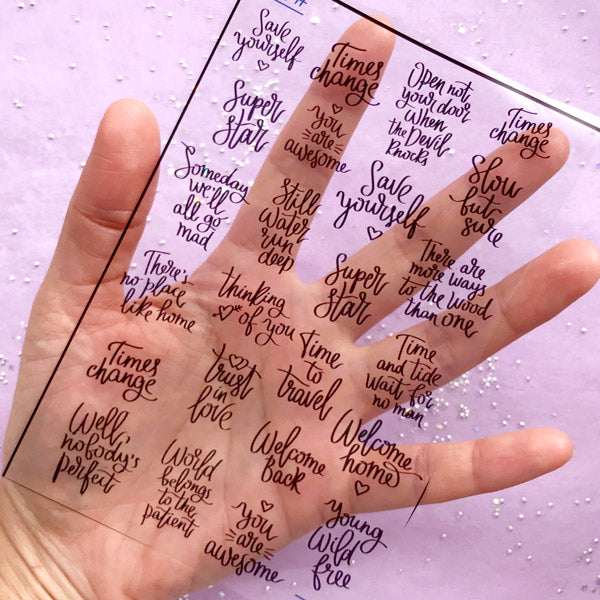 Save
yourself
Times
change
Open not
your door
when
the Devil
knocks
Times
change
Super
star
you
are
awesome
Save
yourself
Slow
but
sure
Someday
we'll
all go
mad
Still
water
run
deep
There's
no place
like home
thinking
of you
Super
star
There are
more ways
to the wood
than one
Times
change
trust
in
love
Time
to
travel
Time
and tide
wait for
no man
Well,
nobody's
perfect
World
belongs
to the
patient
Welcome
back
Welcome
home
you
are
awesome
Young
Wild
free